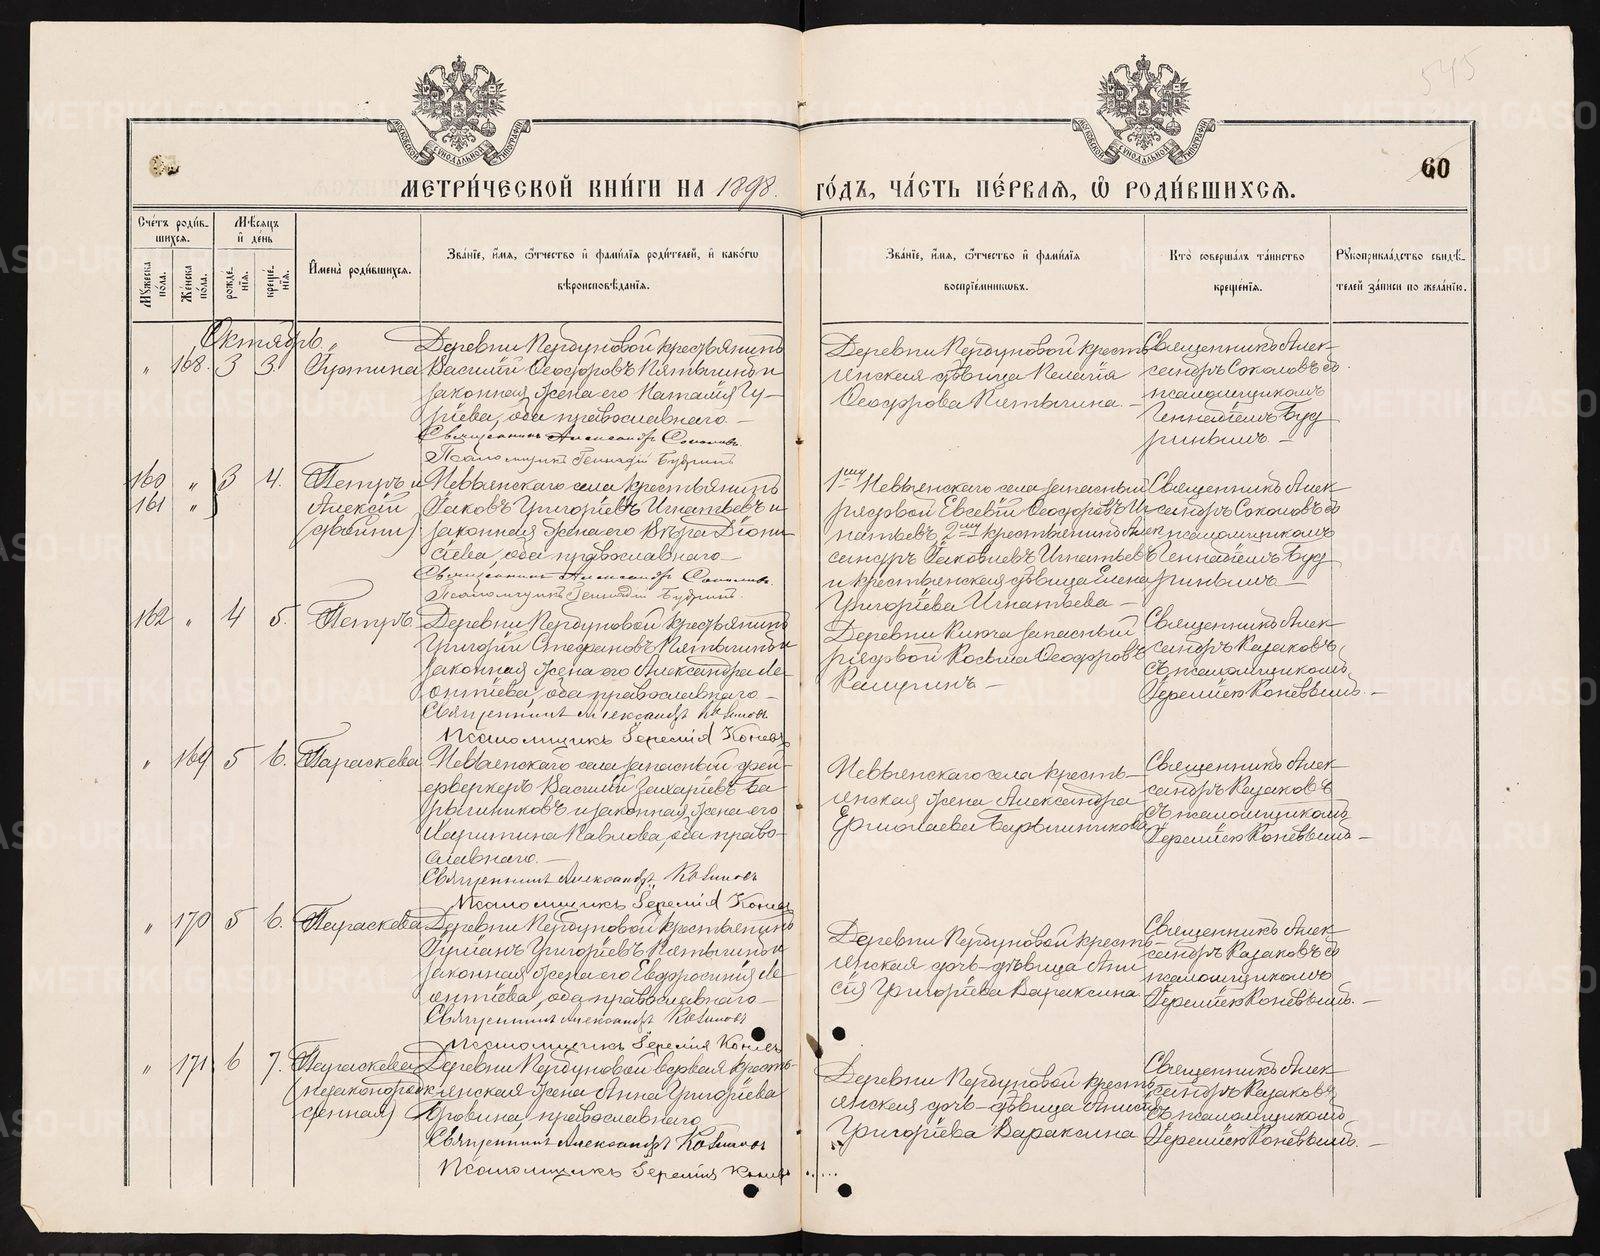 545
60
МЕТРИ́ЧЕСКОЙ КНИ́ГИ НА 1898. ГО́ДЪ, ЧА́СТЬ ПЕ́РВАЯ, Ѡ РОДИ́ВШИХСЯ.
Сче́тъ роди́в-
шихся.
Мѣ́сяцъ
и҆ де́нь
Мꙋ́жеска по́ла.
Же́нска по́ла.
рожде́-
нїя.
креще́-
нїя.
И҆мена̀ роди́вшихся.
Зва́нїе, и҆́мя, ѻ҆́тчество и҆ фами́лїя роди́телей, и҆ како́гѡ
вѣроисповѣ́данїя.
Зва́нїе, и҆́мя, ѻ҆́тчество и҆ фами́лїя
воспрїе́мниковъ.
Кто̀ соверша́лъ та́инство
креще́нїя.
Рꙋкоприкла́дство свидѣ́-
телей за́писи по жела́нїю.
Октябрь
" 168. 3 3. Іустина
Деревни Кербуновой крестьянинъ
Василій Ѳеодоровъ Пятыгинъ и
законная жена его Наталія Гу-
ріева, оба православнаго. —
Священникъ Александръ Соколовъ
Псаломщикъ Геннадій Будринъ
Деревни Кербуновой кресть
янская дѣвица Пелагія
Ѳеодорова Пятыгина. —
Священникъ Алек
сандръ Соколовъ съ
псаломщикомъ
Геннадіемъ Буд
ринымъ —
160 " 3 4. Петръ и
161 " Алексій
(двойни)
Невьянскаго села крестьянинъ
Іаковъ Григоріевъ Игнатьевъ и
законная жена его Вѣра Діони
сіева, оба православнаго —
Священникъ Александръ Соколовъ
Псаломщикъ Геннадій Будринъ
1му Невьянскаго села запасный
рядовой Евсевій Ѳеодоровъ Иг
натьевъ, 2му крестьянинъ Алек
сандръ Іаковлевъ Игнатьевъ
и крестьянская дѣвица Елена
Григоріева Игнатьева —
Священникъ Алек
сандръ Соколовъ съ
псаломщикомъ
Геннадіемъ Буд
ринымъ —
162 " 4 5. Петръ
Деревни Кербуновой крестьянинъ
Григорій Стефановъ Пятыгинъ и
законная жена его Александра Ле
онтіева, оба православнаго —
Священникъ Александръ Казаковъ
Псаломщикъ Іеремія Коневъ
Деревни Ключа запасный
рядовой Косьма Ѳеодоровъ
Священникъ Алек
сандръ Казаковъ
съ псаломщикомъ
Іереміею Коневымъ. —
" 169 5 6. Параскева
Невьянскаго села запасный фей-
ерверкеръ Василій Захаріевъ Ба
рышниковъ и законная жена его
Харитина Павлова, оба право-
славнаго. —
Священникъ Александръ Казаковъ
Псаломщикъ Іеремія Коневъ
Невьянскаго села кресть-
янская жена Александра
Ермолаева Барышникова
Священникъ Алек
сандръ Казаковъ
съ псаломщикомъ
Іереміею Коневымъ —
" 170 5 6. Параскева
Деревни Кербуновой крестьянинъ
Григоріевъ Пятыгинъ и
законная жена его Евфросинія Ле
онтіева, оба православнаго —
Священникъ Александръ Казаковъ
Псаломщикъ Іеремія Коневъ
Деревни Кербуновой кресть
янская дочь-дѣвица Ани
сія Григоріева Вараксина
Священникъ Алек
сандръ Казаковъ съ
псаломщикомъ
Іереміею Коневымъ. —
" 171 6 7. Параскева
(незаконорож
денная)
Деревни Кербуновой вдовая кресть-
янская жена Анна Григоріева
православнаго
Священникъ Александръ Казаковъ
Псаломщикъ Іеремія Коневъ
Деревни Кербуновой кресть
янская дочь-дѣвица Анисія
Григоріева Вараксина
Священникъ Алек
сандръ Казаковъ
съ псаломщикомъ
Іереміею Коневымъ. —
METRIKI.GASO-URAL.RU